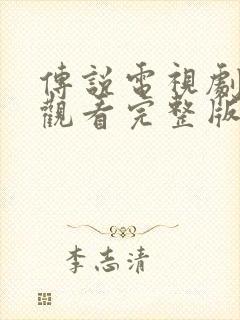 傳說電視劇
觀看完整版
李志清